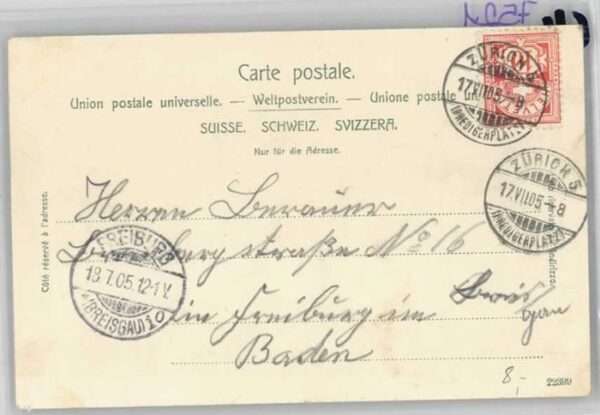 Carte postale.
Union postale universelle. — Weltpostverein. — Unione postale
SUISSE. SCHWEIZ. SVIZZERA.
Nur für die Adresse.
ZÜRICH 5
17.VII.05-8
(PREDIGERPLATZ)
ZÜRICH 5
17.VII.05-8
(PREDIGERPLATZ)
Côté réservé à l'adresse.
Herren Berauer
straße No 16
in Freiburg im
Baden
FREIBURG
18.7.05.12-1 V.
(BREISGAU) 1
8,-